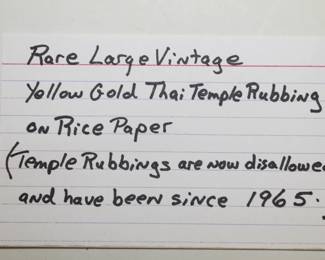 Rare Large Vintage
Yellow Gold Thai Temple Rubbing
on Rice Paper
(Temple Rubbings are now disallowed
and have been since 1965.